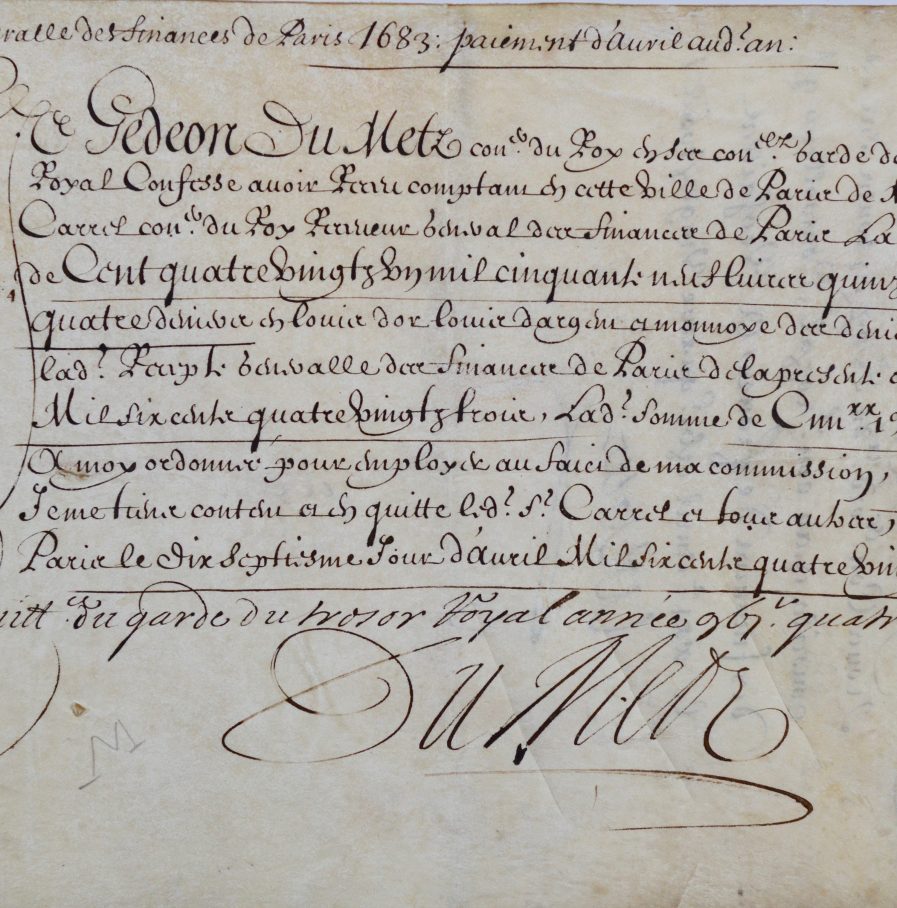 ralle des finances de Paris 1683: paiement d'Avril aud.t an:
Gedeon Du Metz con.er du Roy en ses con.elz Garde d
Royal Confesse avoir Receu comptant en cette ville de Paris de
Carrel con.er du Roy Receveur general des finances de Paris La
de Cent quatre vingtz un mil cinquante neuf livres quinz
quatre deniers en louis dor louis dargent et monnoye des deni
lad.t Recepte generalle des finances de Paris de la presente
Mil six cents quatre vingtz trois, Lad.t somme de
A moy ordonnée pour employer au faict de ma commission,
Je me tiens content et en quitte led.t S.r Carrel et tous autres,
Paris le dix septiesme Jour d'avril Mil six cents quatre vin
uitt.ce du garde du tresor Royal année quatr
Du Metz
M